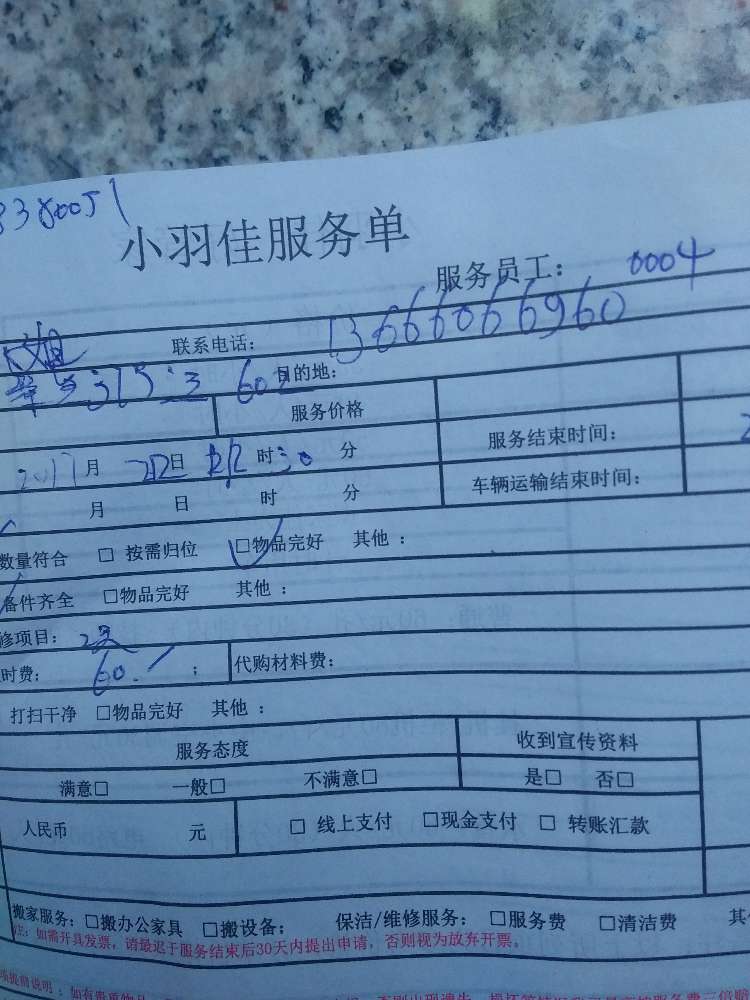 小羽佳服务单
服务员工: 0004
联系电话: 13666066960
602 目的地:
服务价格
2017 月 日 时 30 分 服务结束时间:
月 日 时 分 车辆运输结束时间:
数量符合 □ 按需归位 □物品完好 其他 :
备件齐全 □物品完好 其他 :
修项目:
时费: 60. ; 代购材料费:
打扫干净 □物品完好 其他 :
服务态度 收到宣传资料
满意□ 一般□ 不满意□ 是□ 否□
人民币 元 □ 线上支付 □现金支付 □ 转账汇款
搬家服务: □搬办公家具 □搬设备; 保洁/维修服务: □服务费 □清洁费 其
注: 如需开具发票, 请最迟于服务结束后30天内提出申请, 否则视为放弃开票。